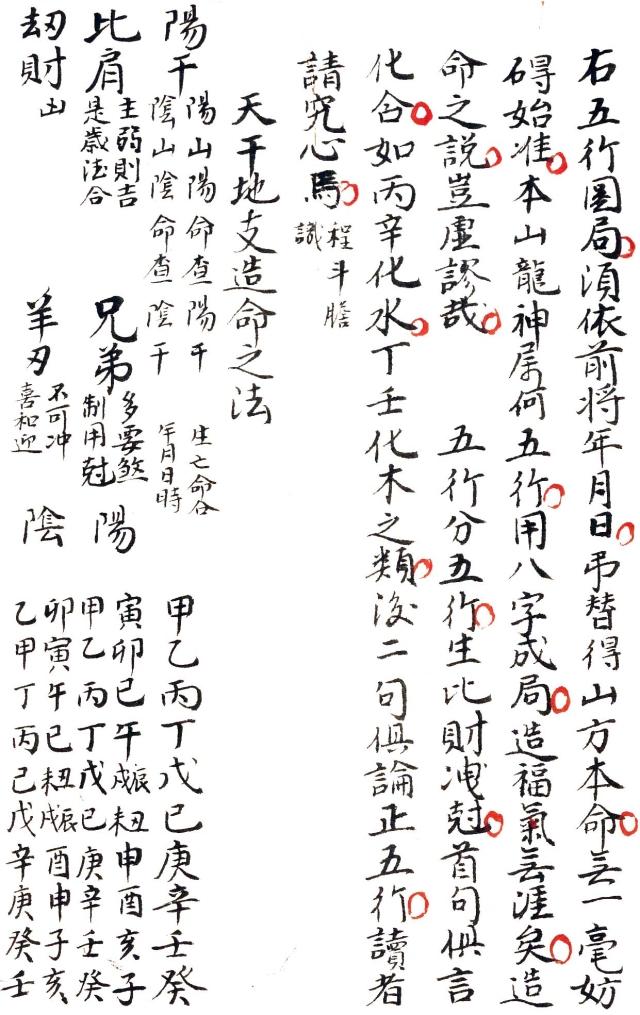 右五行圖局須依前将年月日弔替得山方本命無一毫妨
碍始准本山龍神属何五行用八字成局造福氣無涯矣造
命之說豈虛謬哉　五行分五行生比財洩尅首句俱言
化合如丙辛化水丁壬化木之類後二句俱論正五行讀者
請究心焉 程斗膽識
天干地支造命之法
陽干 陽山陽命查陽干 陰山陰命查陰干 生亡命合年月日時 甲乙丙丁戊己庚辛壬癸
比肩 主弱則吉是歲法合 兄弟 多要煞制用尅 陽 寅卯巳午辰戌丑未申酉亥子 甲乙丙丁戊己庚辛壬癸
刼財 凶 羊刃 不可冲喜和迎 陰 卯寅午巳丑未辰戌酉申子亥 乙甲丁丙己戊辛庚癸壬